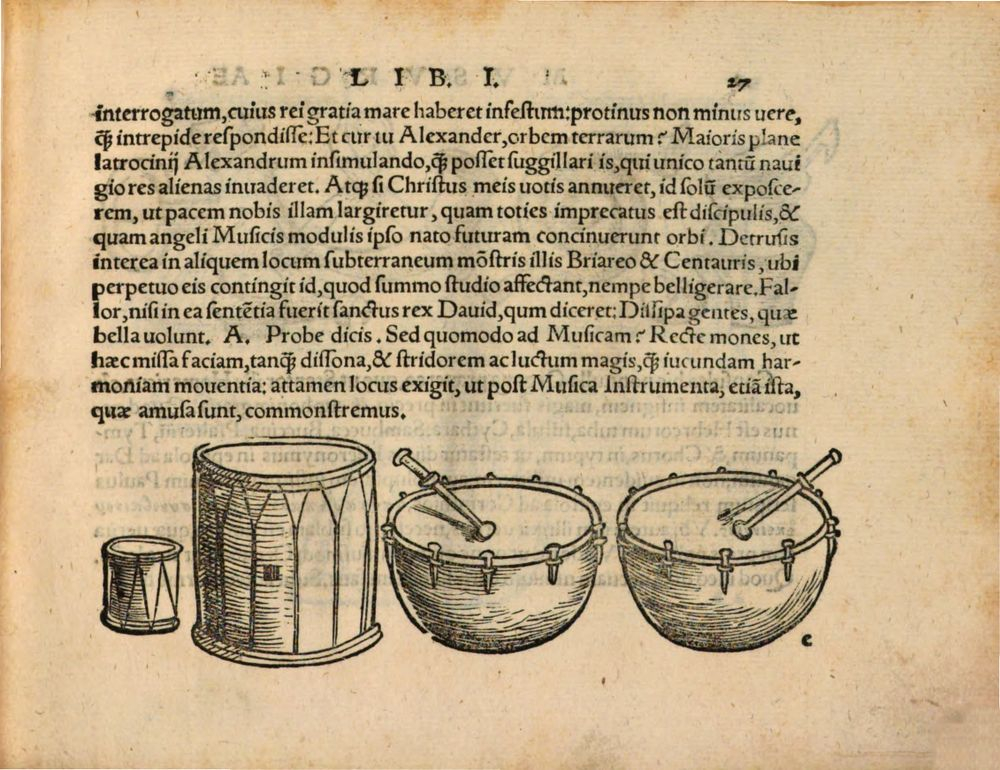 LIB. I. 27
interrogatum,cuius rei gratia mare haberet infeſtum:protinus non minus uere,
ꝙ̃ intrepide reſpondiſſe: Et cur tu Alexander,orbem terrarum? Maioris plane
latrocinij Alexandrum inſimulando,ꝙ̃ poſſet ſuggillari is,qui unico tantũ naui
gio res alienas inuaderet. Atꝙ ſi Chriſtus meis uotis annueret, id ſolũ expoſce-
rem, ut pacem nobis illam largiretur, quam toties imprecatus eſt diſcipulis,&
quam angeli Muſicis modulis ipſo nato futuram concinuerunt orbi. Detruſis
interea in aliquem locum ſubterraneum mõſtris illis Briareo & Centauris, ubi
perpetuo eis contingit id,quod ſummo ſtudio affectant,nempe belligerare. Fal-
lor,niſi in ea ſentẽtia fuerit ſanctus rex Dauid,qum diceret: Diſsipa gentes, quæ
bella uolunt. A. Probe dicis. Sed quomodo ad Muſicam? Recte mones, ut
hæc miſſa faciam,tanꝙ̃ diſſona,& ſtridorem ac luctum magis,ꝙ̃ iucundam har-
moniam mouentia: attamen locus exigit, ut poſt Muſica Inſtrumenta, etiã iſta,
quæ amuſa ſunt, commonſtremus.
c